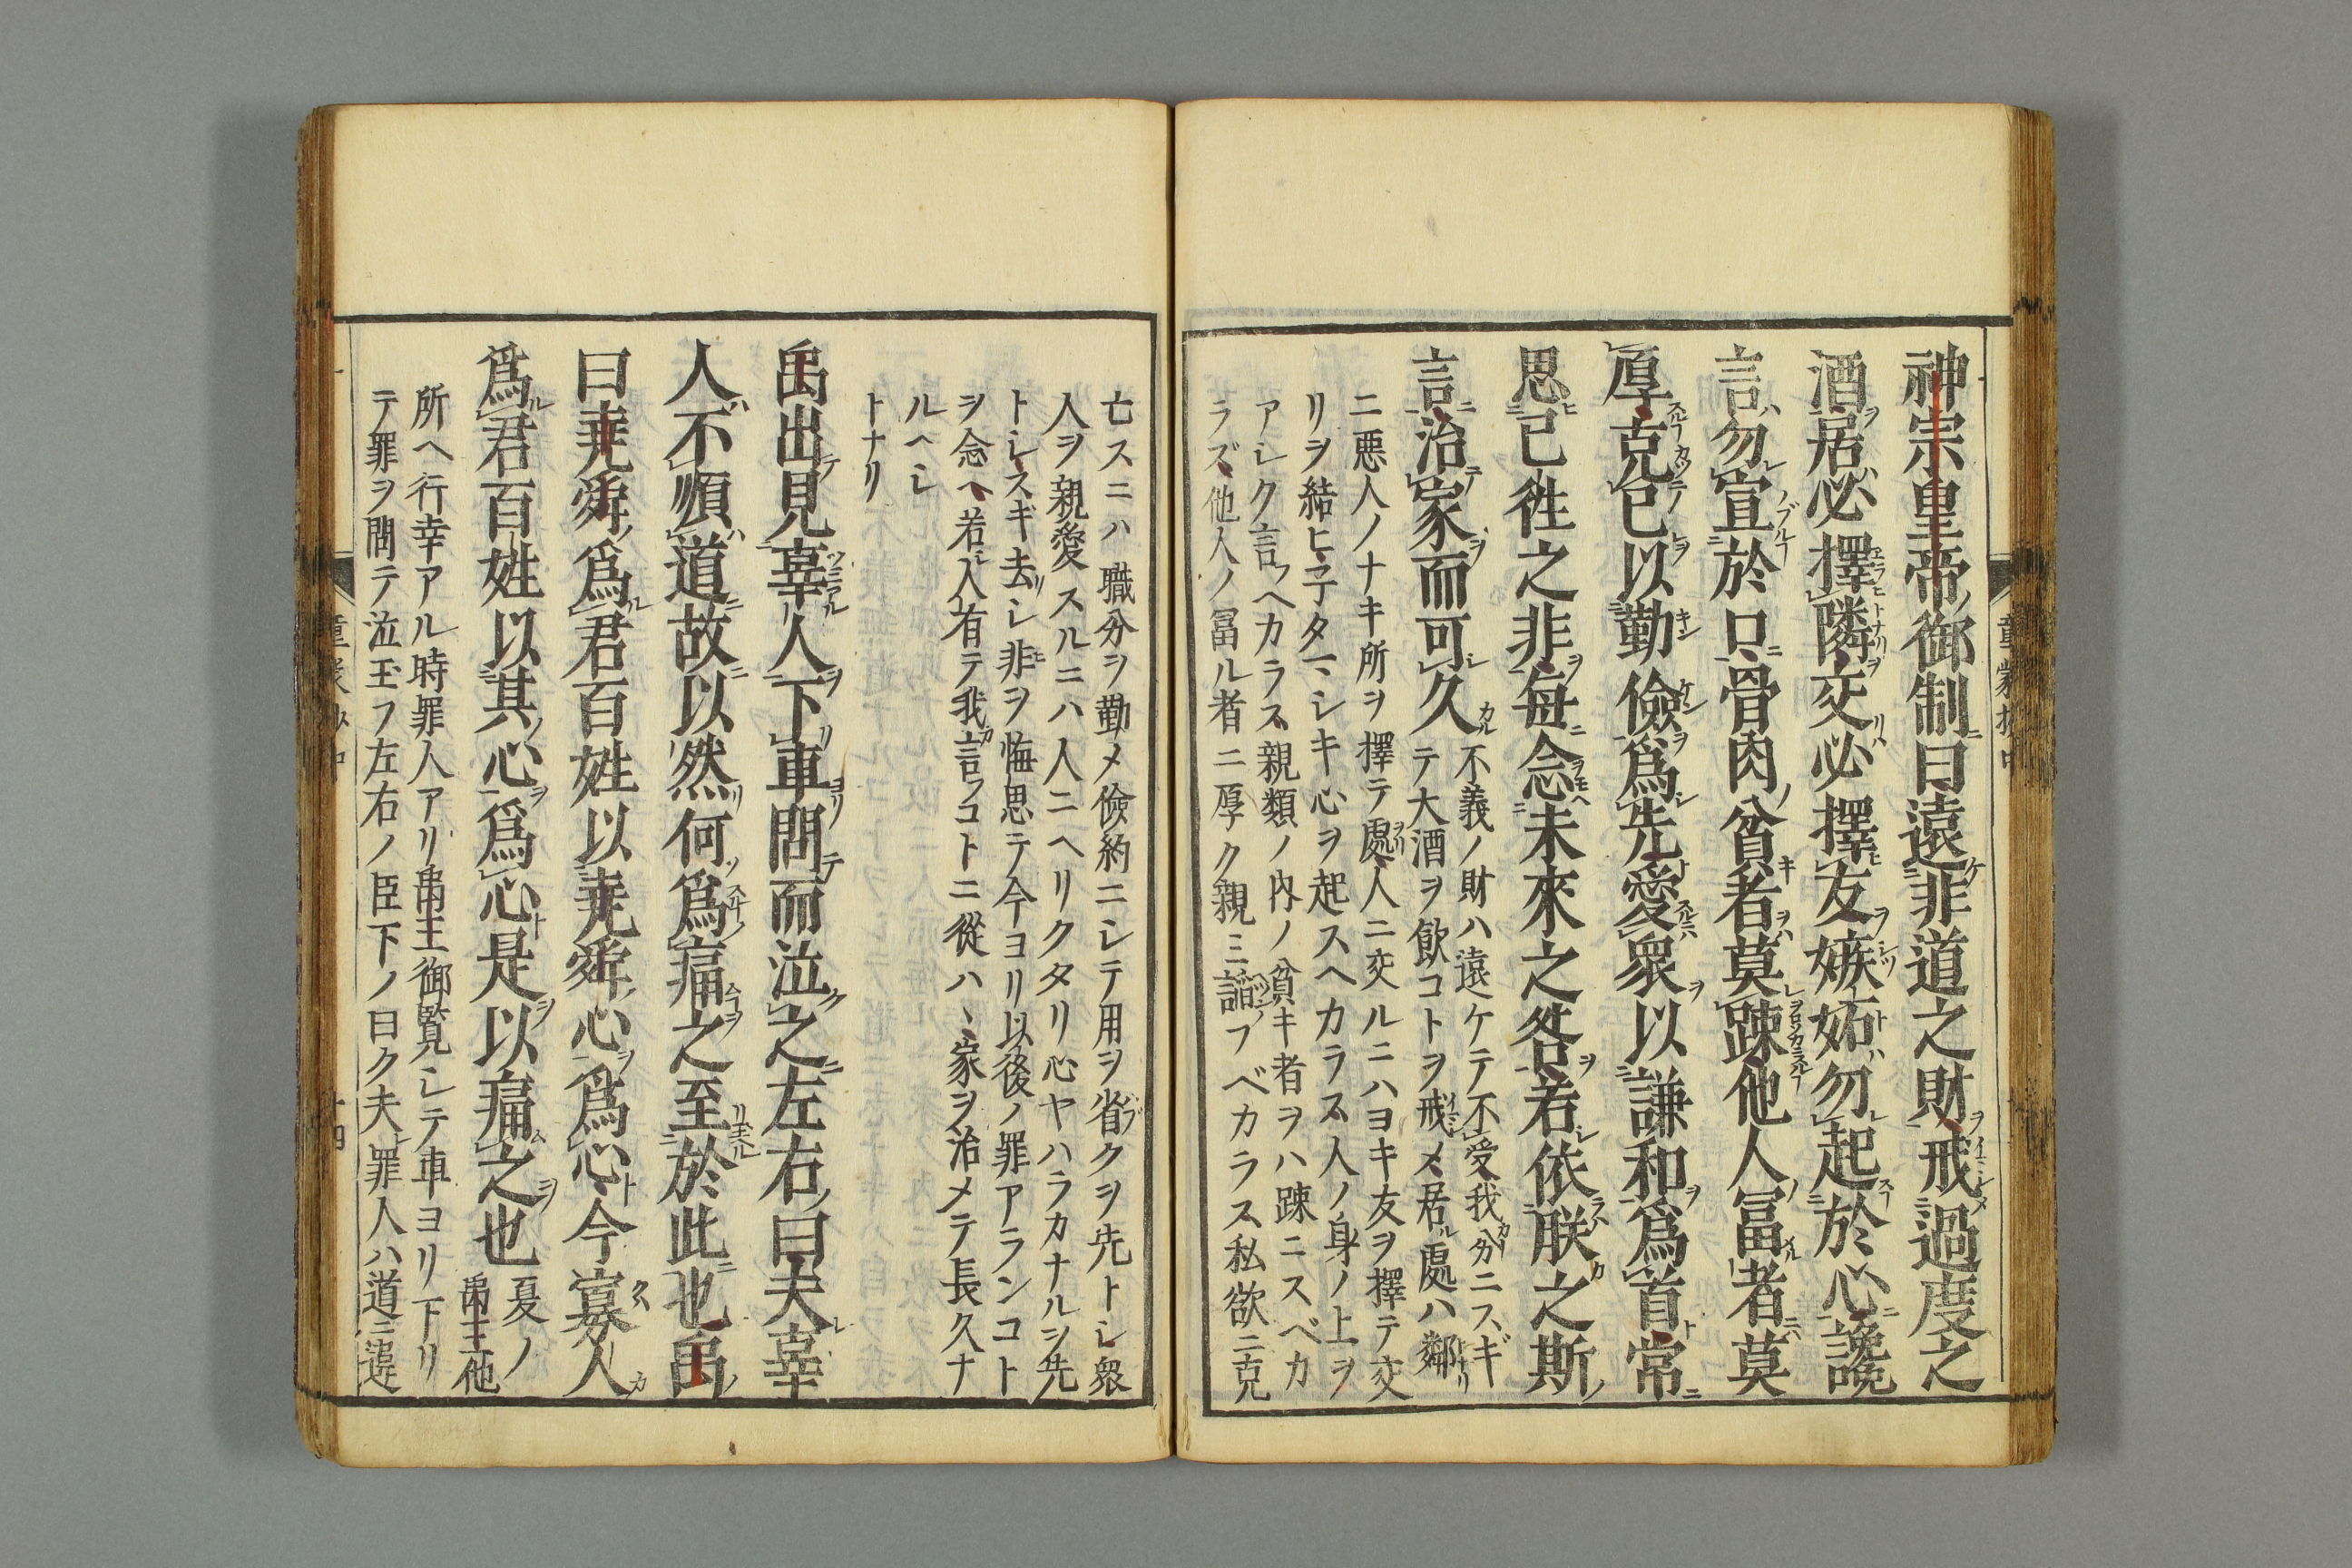 神宗皇帝御制曰遠非道之財戒過度之
酒居必擇隣交必擇友嫉妬勿起於心讒
言勿宣於口骨肉貧者莫踈他人冨者莫
厚克己以勤儉爲先愛衆以謙和爲首常
思已徃之非毎念未來之咎若依朕之斯
言治家而可久
不義ノ財ハ遠ケテ不受我分ニスギ
テ大酒ヲ飲コトヲ戒メ居ル處ハ鄰
ニ惡人ノナキ所ヲ擇テ處人ニ交ルニハヨキ友ヲ擇テ交
リヲ結ヒ子タマシキ心ヲ起スヘカラス人ノ身ノ上ヲ
アシク言フヘカラス親類ノ内ノ貧キ者ヲハ踈ニスベカ
ラズ他人ノ冨ル者ニ厚ク親ミ謟フベカラス私欲ニ克
亡スニハ職分ヲ勤メ儉約ニシテ用ヲ省クヲ先トシ衆
人ヲ親愛スルニハ人ニヘリクタリ心ヤハラカナルヲ先
トシスギ去リシ非ヲ悔思テ今ヨリ以後ノ罪アランコト
ヲ念ヘ若シ人有テ我カ言フコトニ從ハヽ家ヲ治メテ長久ナ
ルヘシ
トナリ
禹出見辜人下車問而泣之左右曰夫辜
人不順道故以然何爲痛之至於此也禹
曰堯舜爲君百姓以堯舜心爲心今寡人
爲君百姓以其心爲心是以痛之也
夏ノ
禹王他
所ヘ行幸アル時罪人アリ禹王御覧シテ車ヨリ下リ
テ罪ヲ問テ泣玉フ左右ノ臣下ノ曰ク夫罪人ハ道ニ違